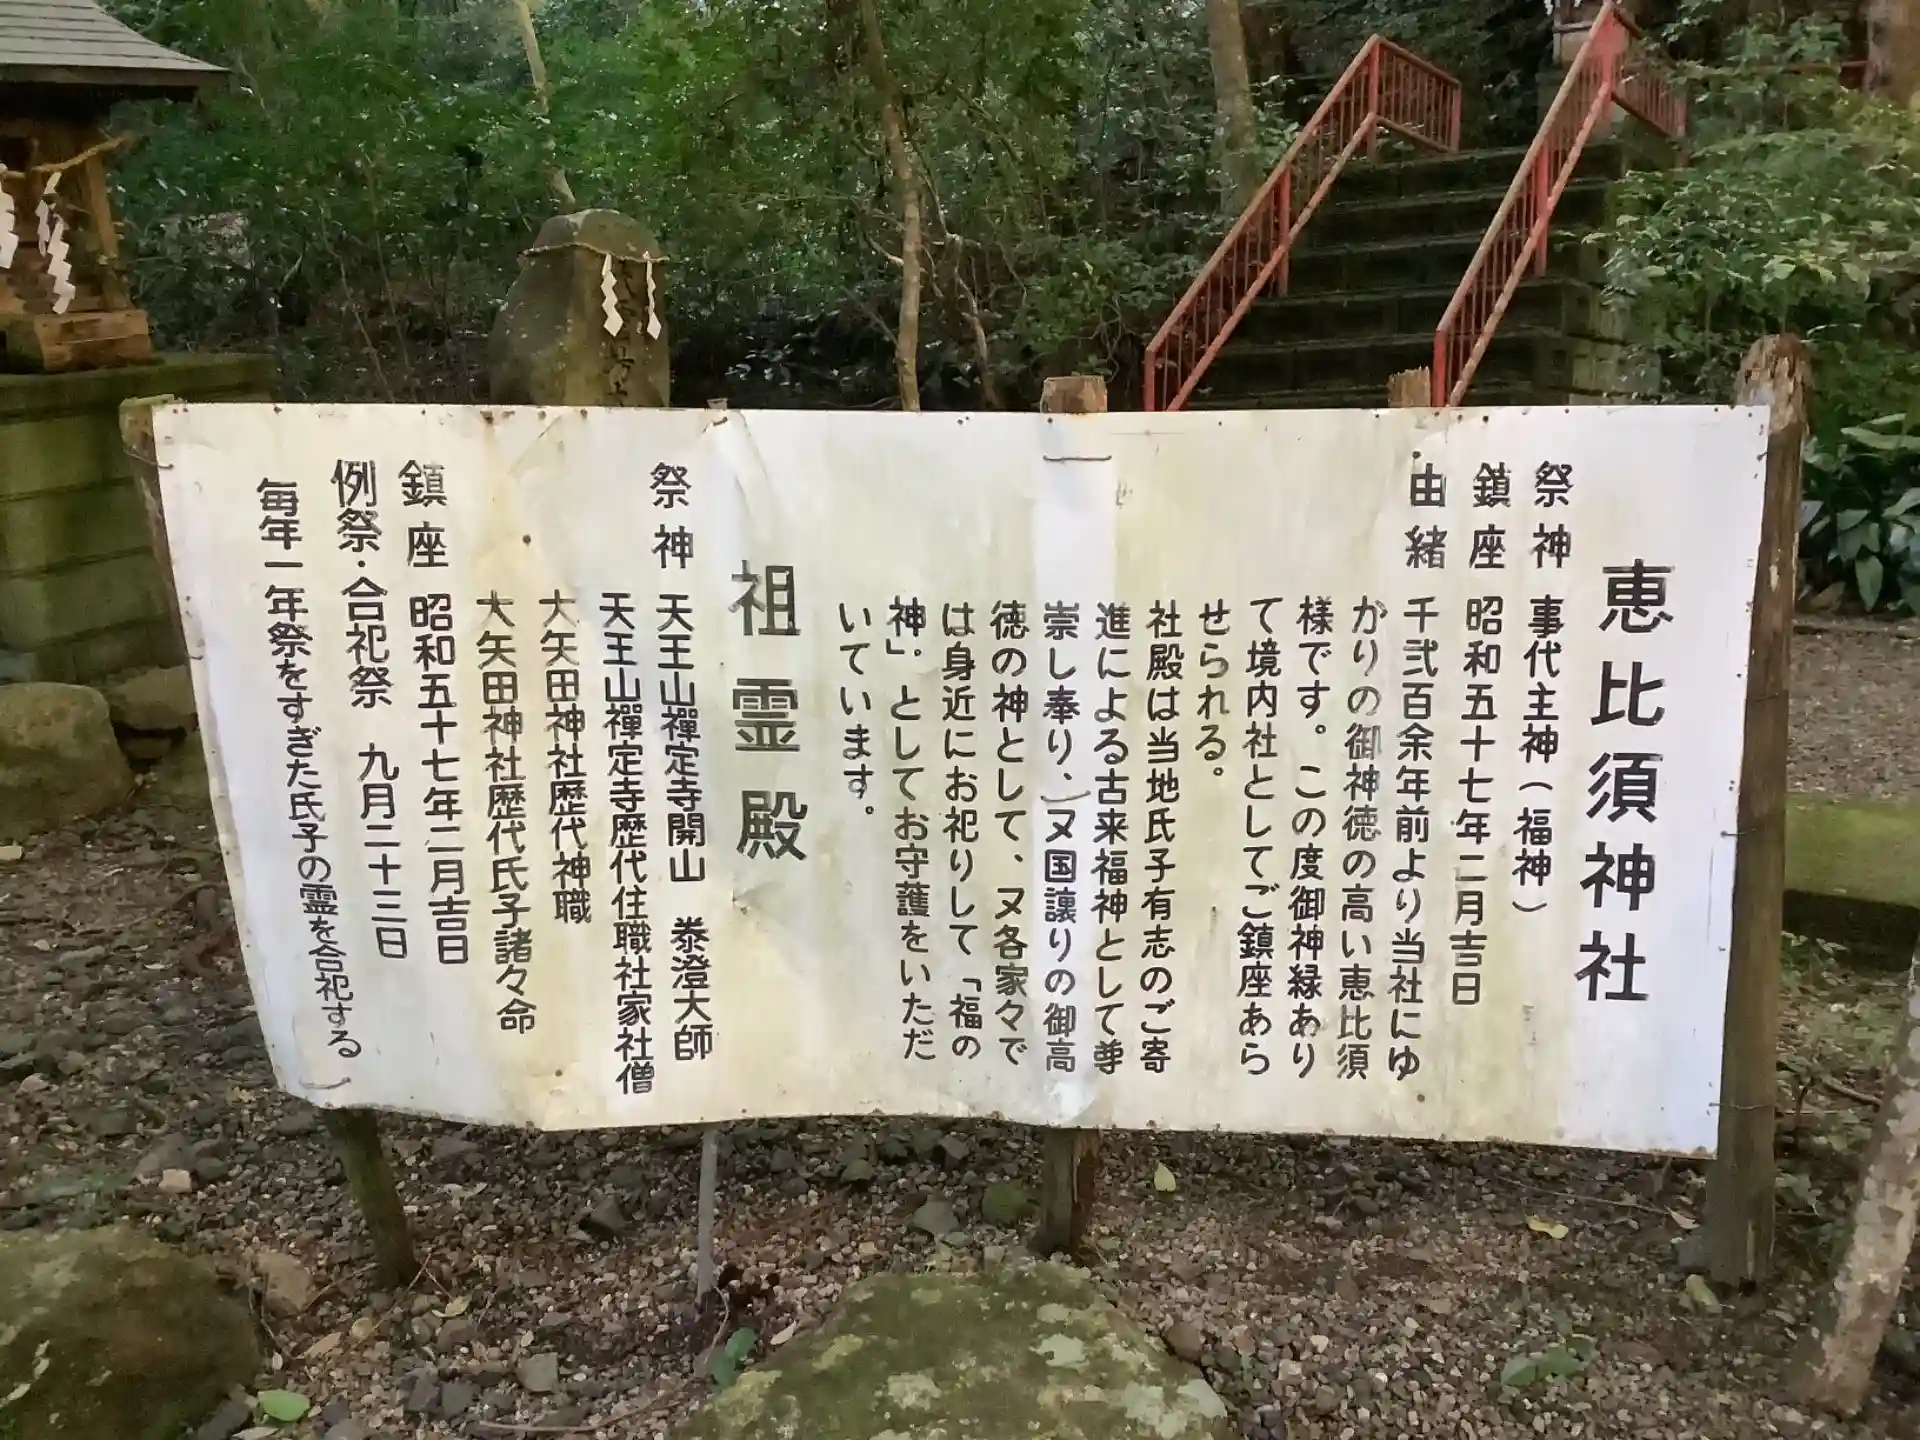 恵比須神社
祭神 事代主神（福神）
鎮座 昭和五十七年二月吉日
由緒 千弐百余年前より当社にゆ
かりの御神徳の高い恵比須
様です。この度御神縁あり
て境内社としてご鎮座あら
せられる。
社殿は当地氏子有志のご寄
進による古来福神として尊
崇し奉り、又国譲りの御高
徳の神として、又各家々で
は身近にお祀りして「福の
神」。としてお守護をいただ
いています。
祖霊殿
祭神 天王山禪定寺開山 泰澄大師
天王山禪定寺歴代住職社家社僧
大矢田神社歴代神職
大矢田神社歴代氏子諸々命
鎮座 昭和五十七年二月吉日
例祭・合祀祭 九月二十三日
毎年一年祭をすぎた氏子の霊を合祀する